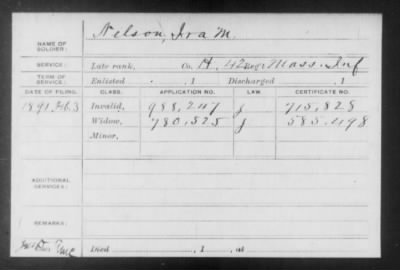 Nelson, Ira M.
NAME OF SOLDIER:
SERVICE: Late rank, Co. H, 42 Reg't Mass. Inf
TERM OF SERVICE: Enlisted , 1 Discharged , 1
DATE OF FILING. CLASS. APPLICATION NO. LAW. CERTIFICATE NO.
1891, Invalid, 988,247 J 715,828
Widow, 780,525 J 585,498
Minor,
ADDITIONAL SERVICES:
REMARKS:
Died , 1 , at